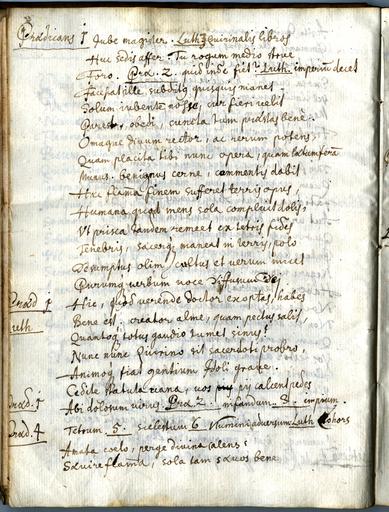 Prædicans 1 Jube magister. Luth. Quirinalis libros
Huc sedis affer. Tu rogum medio strue
Foro. Præ. 2. quid inde fiet? Luth. imperium decet
Facesat ille, subditus quisquis manet.
Solum iubentis nosse, cur fieri velit
Præd. 1 Parebo, obedi, cuncta tum præstas bene.
O magne divum rector, ac rerum potens,
Quam placita tibi nunc opera, quam lætum fera
Munus. benignus cerne, commentis dabit
Hæc flama finem sufferet terris opus,
Humana quod mens sola compluit dolis,
Vt prisca tandem remeet ex tetris fides
Tenebris, sacerq. maneat in terris, polo
Desumptus olim, cultus et verum micet
Purumq. verbum voce diffusum Dei
Præd 1 Hic, quod verende doctor exoptas, habes
Luth Bene est, creator alme, quam pectus salit,
Quantoq. totus gaudio tumet sinus!
Nunc nunc Quirino sit sacerdoti probro,
Animoq. fiat gentium Poli grave.
Præd. 5 Cedite statuta cana, vos py calcent pedes
Abi dolosum virus Præ 2. infandum. 3. impium.
Præd. 4 Tetrum 5. scelestum 6 Numini adversum Luth Cohors
Amata cœlo, perge divina calens!
Sævire flama, sola tam sævos bene